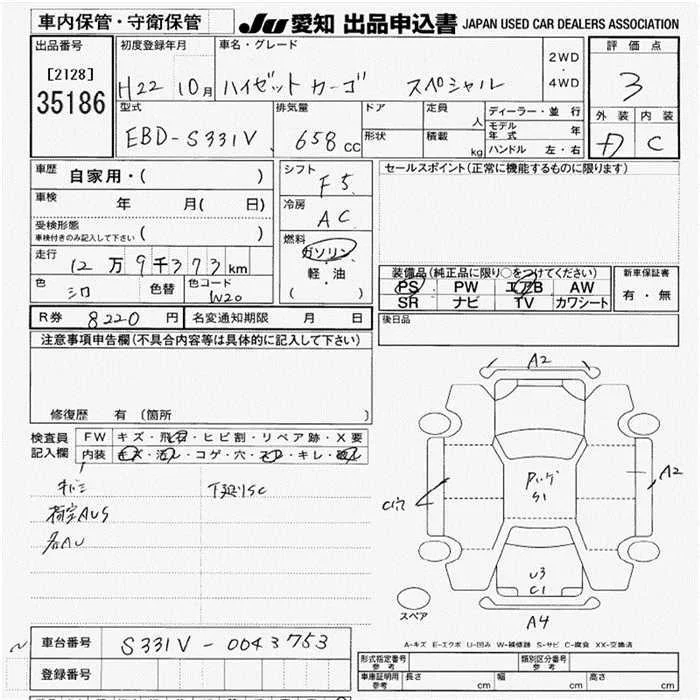 車内保管・守衛保管
JU 愛知 出品申込書 JAPAN USED CAR DEALERS ASSOCIATION
出品番号
[2128]
35186
初度登録年月
H22 10月
車名・グレード
ハイゼット カーゴ スペシャル
2WD
・
4WD
評価点
3
外装 内装
D C
型式
EBD-S331V
排気量
658 cc
ドア
形状
定員
人
積載
kg
ディーラー・並行
モデル年式 年
ハンドル 左・右
車歴
自家用・( )
車検
年 月( 日)
受検形態
車検付きのみ記入して下さい ( )
走行
12万9千373km
色
シロ
色替
色コード
W20
シフト
F5
冷房
AC
燃料
ガソリン
・
軽・油
( )
セールスポイント(正常に機能するものに限ります)
装備品(純正品に限り○をつけてください)
PS PW エアB AW
SR ナビ TV カワシート
新車保証書
有・無
後日品
R券 8220 円 名変通知期限 月 日
注意事項申告欄(不具合内容等は具体的に記入して下さい)
修復歴 有 (箇所 )
検査員
記入欄
FW キズ・飛石・ヒビ割・リペア跡・X要
内装 キズ・汚レ・コゲ・穴・スレ・キレ・破レ
キバミ
下廻りSC
荷室AUS
各AU
A2
A2
C穴
S1
U3
C1
A4
スペア
A-キズ E-エクボ U-凹み W-補修跡 S-サビ C-腐食 XX-交換済
車台番号
S331V-0043753
登録番号
型式指定番号
参考
類別区分番号
参考
車庫証明用
参考
長さ cm
幅 cm
高さ cm